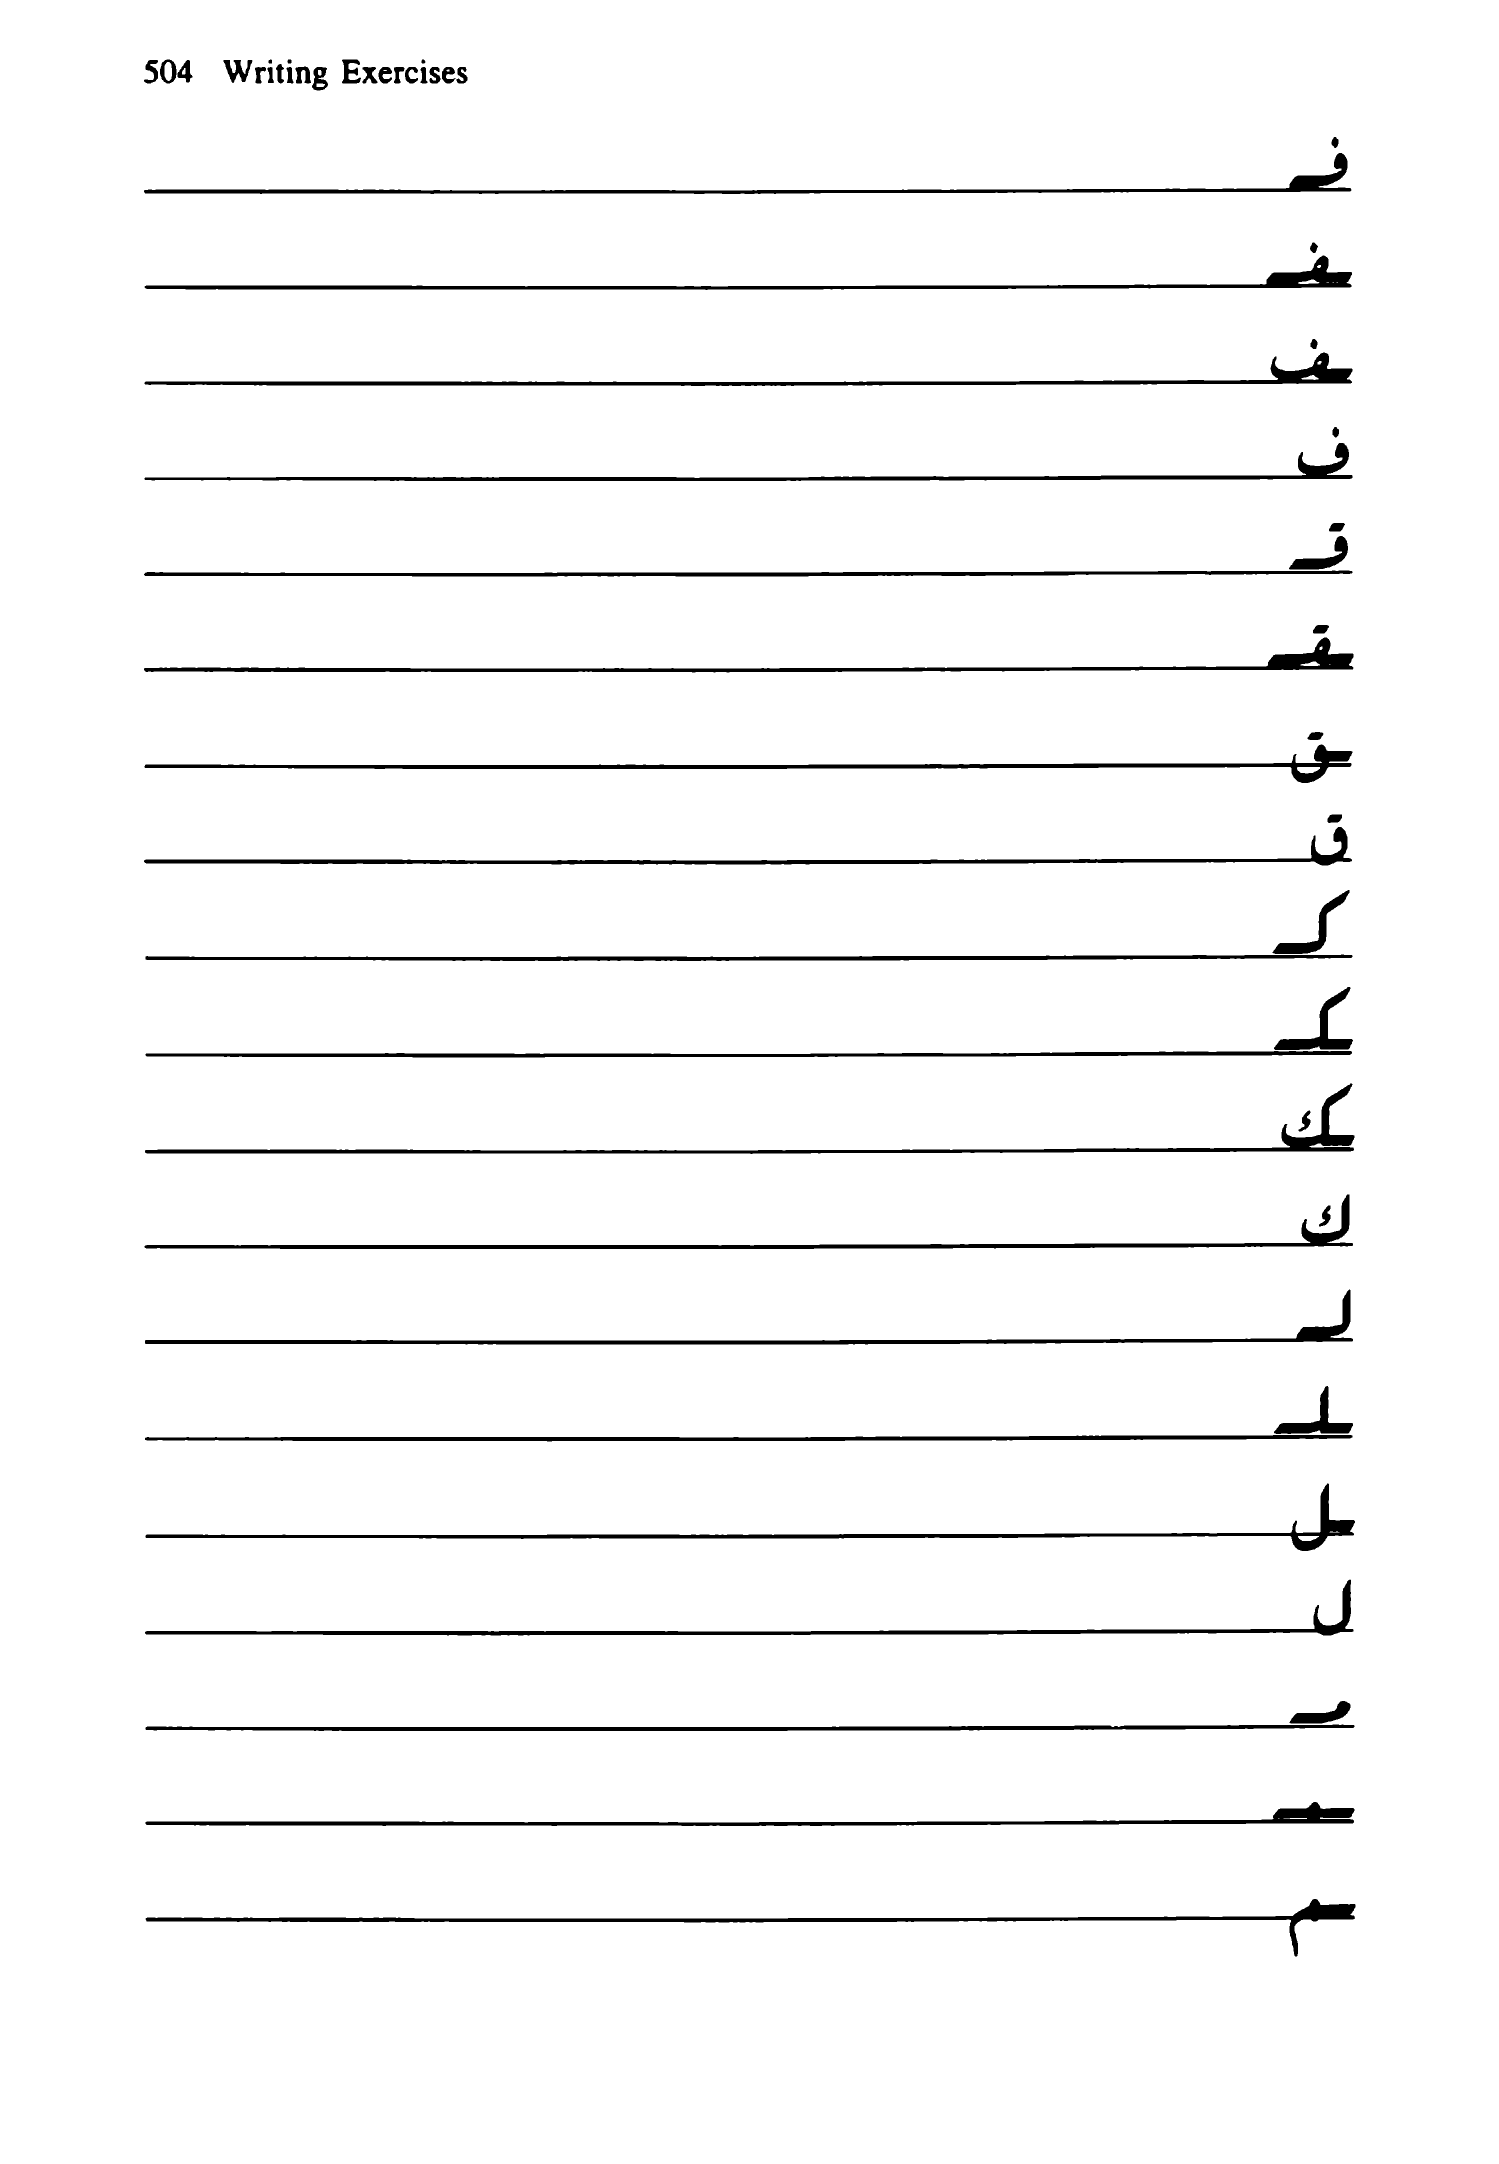 504 Writing Exercises
فـ
ـفـ
ـف
ف
قـ
ـقـ
ـق
ق
كـ
ـكـ
ـك
ك
لـ
ـلـ
ـل
ل
مـ
ـمـ
ـم